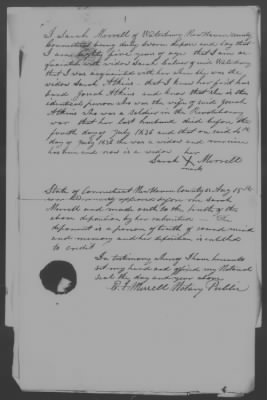 I Sarah Merrell of Waterbury New Haven County
Connecticut being duly sworn depose and say that
I am eighty five years of age that I am ac
quainted with widow Sarah of said Waterbury
that I was acquainted with her when she was the
widow Sarah Atkins that I knew her first hus
band Josiah Atkins and know that she is the
identical person who was the wife of said Josiah
Atkins who was a Soldier in the Revolutionary
war that her last husband died before the
fourth day of July 1836 and that on said 4th
day of July 1836 she was a widow and
and now is a widow her
Sarah X Merrell
mark
State of Connecticut New Haven County ss Aug 15th
appeared before me Sarah
Merrell and made oath to the truth of the
above deposition by her subscribed The
deponent is a person of truth of sound mind
and memory and her deposition is entitled
to credit
In testimony whereof I have hereunto
set my hand and affixed my Notarial
Seal the day and year above
Merrell Notary Public